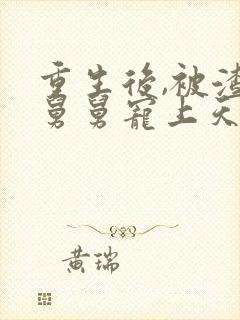 重生後,被渣
舅舅寵上天
黃瑞